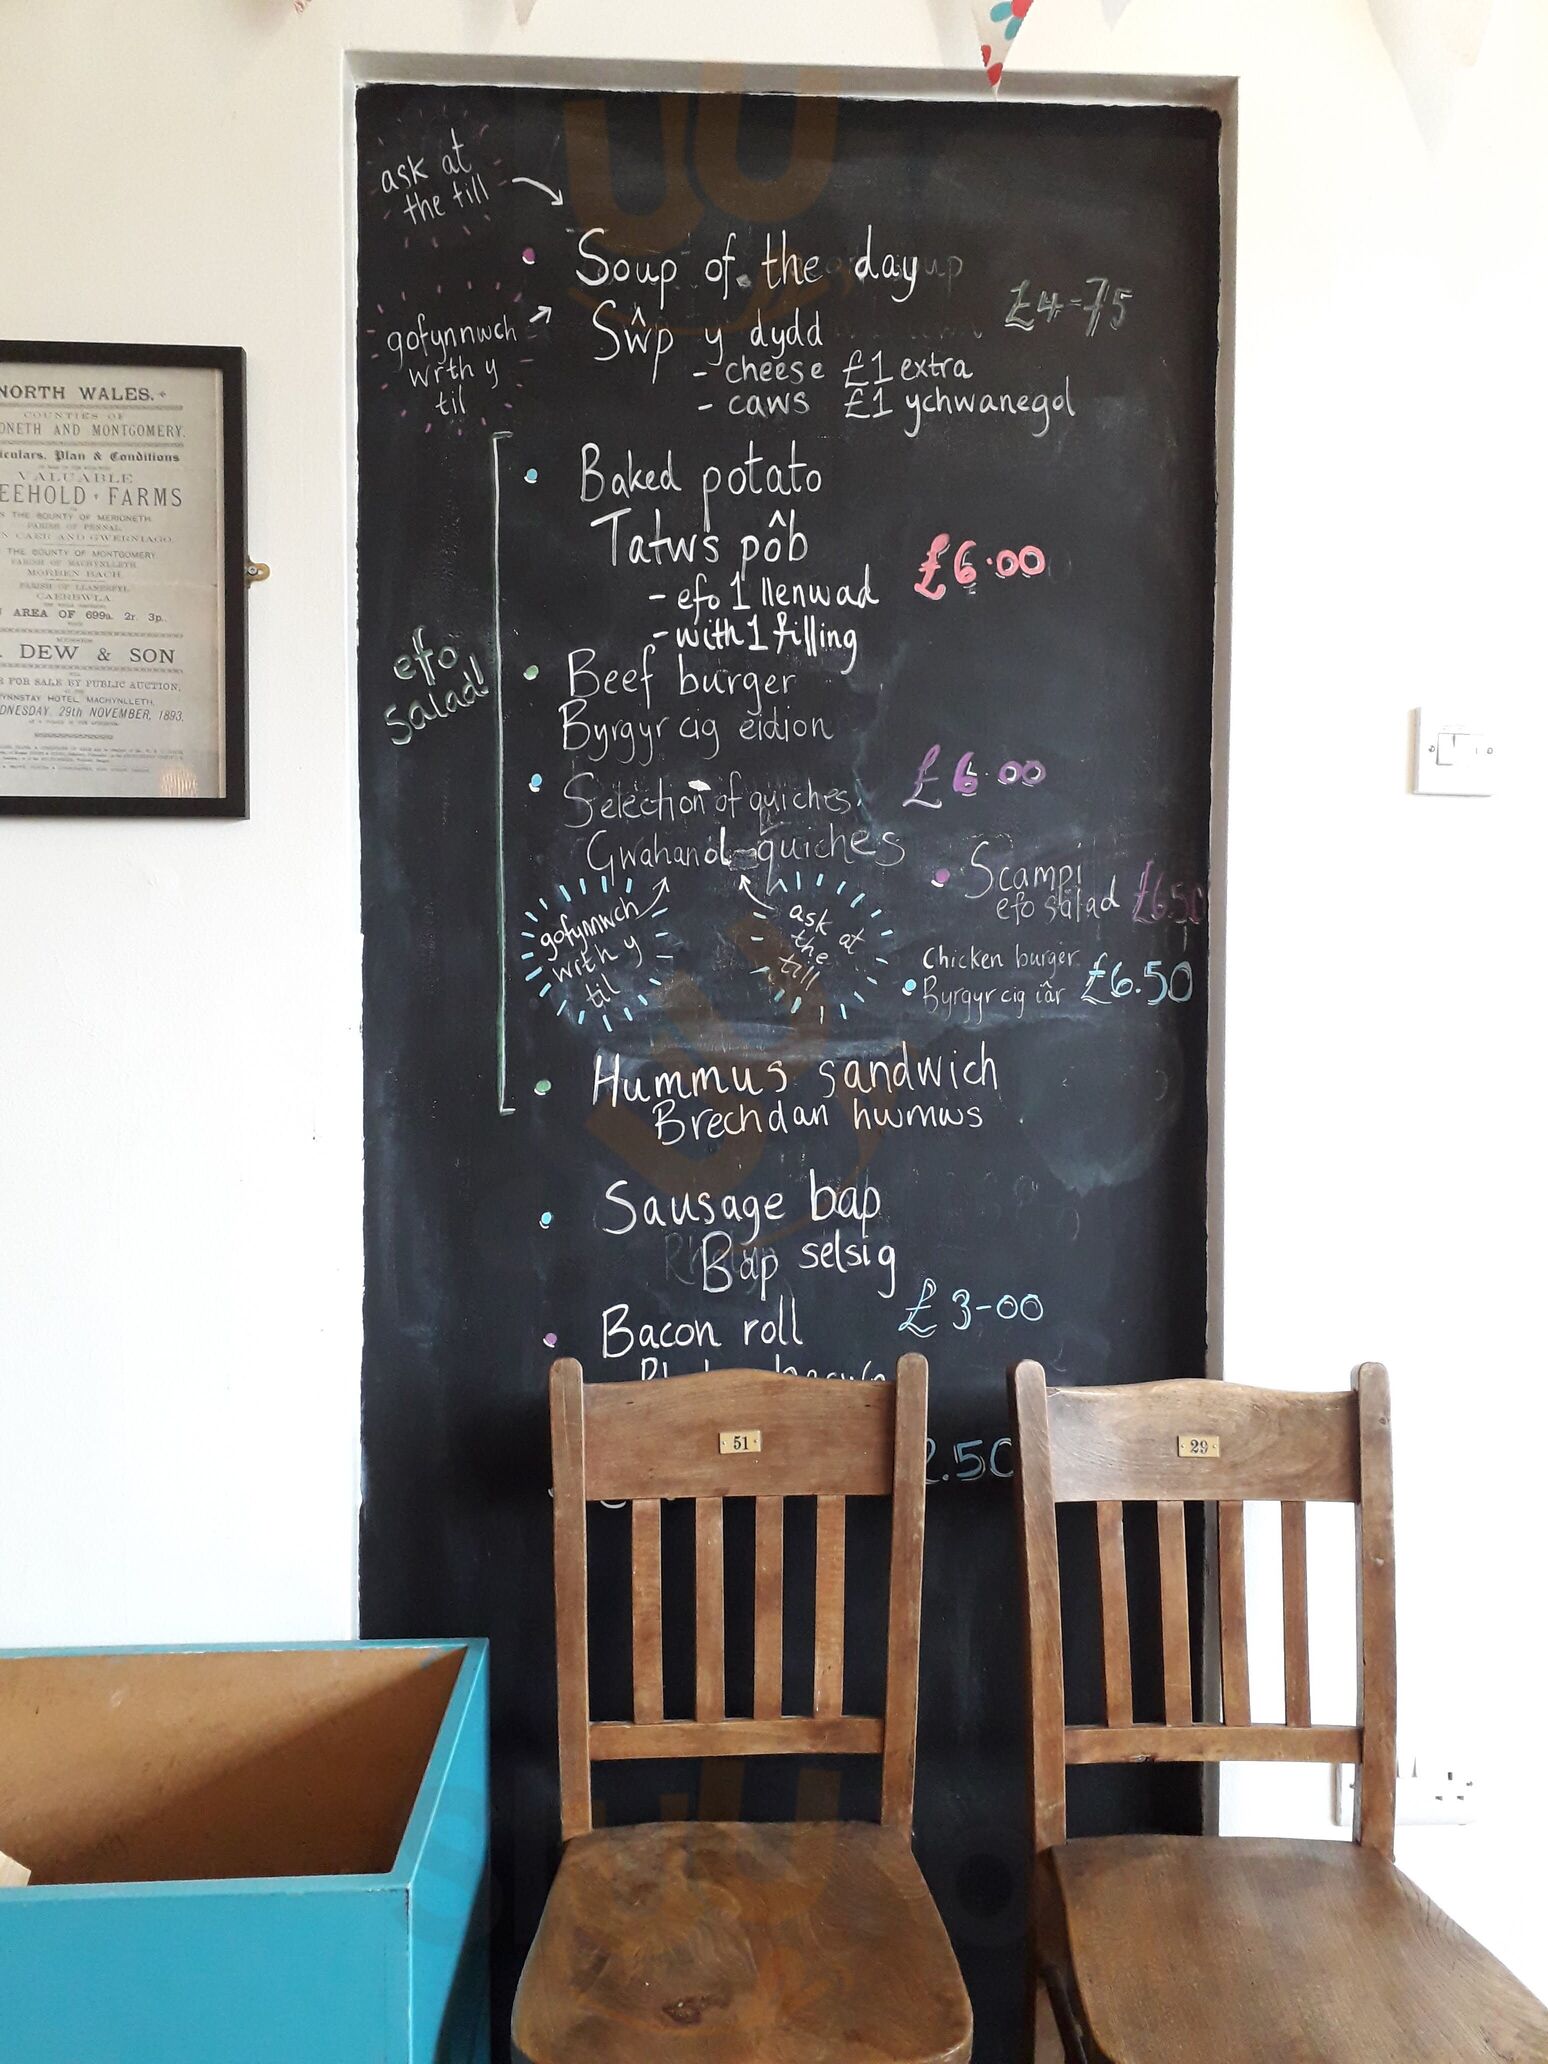 ask at
the till
Soup of the day
£4-75
Sŵp y dydd
gofynnwch
wrth y
til
- cheese £1 extra
- caws £1 ychwanegol
efo
salad
Baked potato
Tatws pôb
£6.00
- efo 1 llenwad
- with 1 filling
Beef burger
Byrgyr cig eidion
£6.00
Selection of quiches
Gwahanol quiches
gofynnwch
wrth y
til
ask at
the
till
Scampi
efo salad £6.50
Chicken burger
Byrgyr cig iâr £6.50
Hummus sandwich
Brechdan hwmws
Sausage bap
Bap selsig
£3-00
Bacon roll
.50
51
29
NORTH WALES.
COUNTIES OF
AND MONTGOMERY.
Plan & Conditions
VALUABLE
FARMS
THE COUNTY OF MERIONETH.
PARISH OF PENNAL.
CAER AND GWERNIAGO.
THE COUNTY OF MONTGOMERY
PARISH OF MACHYNLLETH.
MORBEN BACH.
PARISH OF LLANBRYNMAIR.
CAERBWLA.
AREA OF 699a. 2r. 3p.
DEW & SON
FOR SALE BY PUBLIC AUCTION,
HOTEL, MACHYNLLETH,
29th NOVEMBER, 1893,